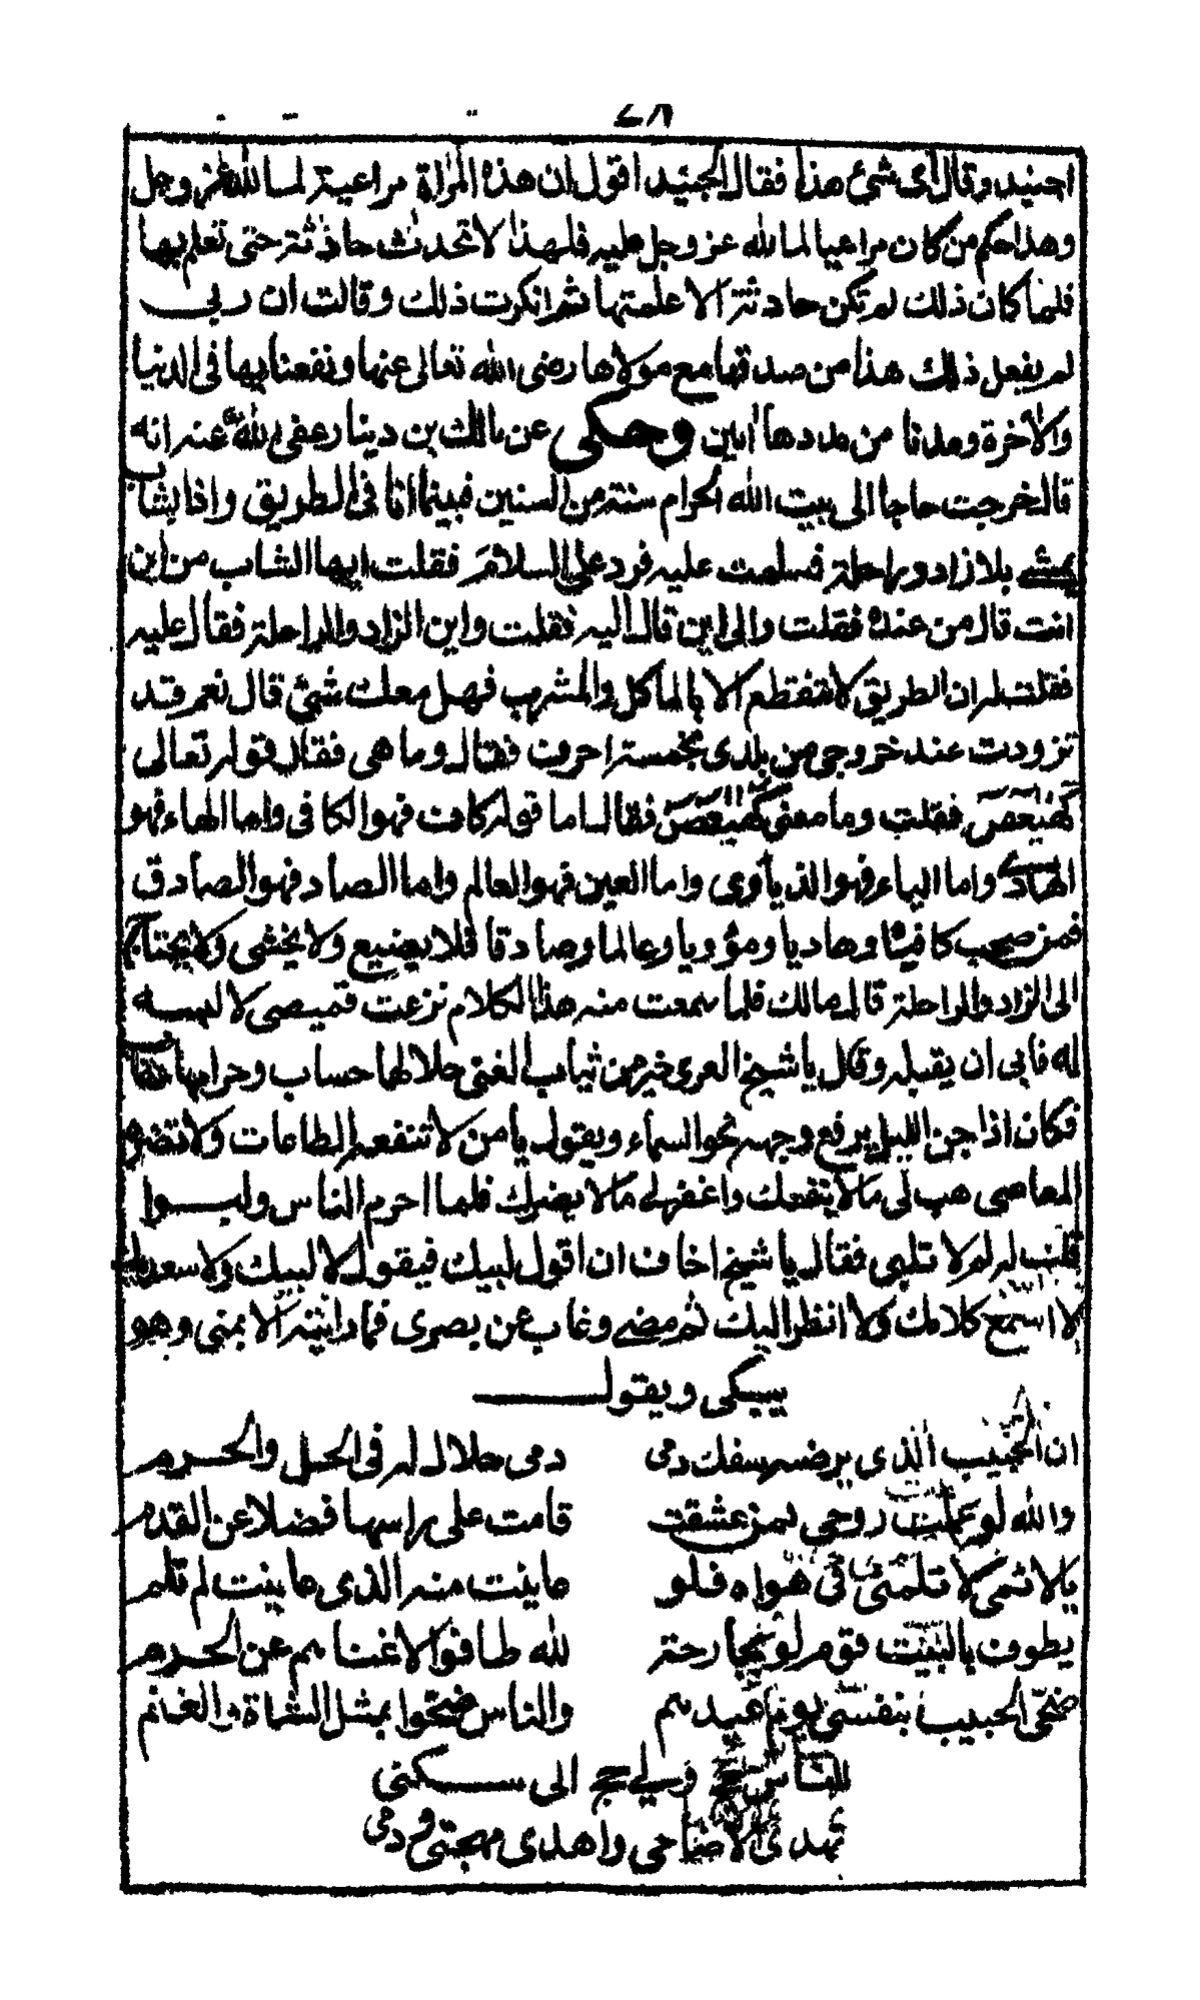 ٤٨
الجنيد وقال اى شئ هذا فقال الجنيد اقول ان هذه المراة مراعية لما لله عز وجل
وهذا حكم من كان مراعيا لما لله عز وجل عليه فلهذا لا تحدث حادثة حتى تعلم بها
فلما كان ذلك لم تكن حادثة الا علمتها ثم انكرت ذلك وقالت ان ربى
لم يفعل ذلك هذا من صدقها مع مولاها رضى الله تعالى عنها ونفعنا بها فى الدنيا
والاخرة ومدنا من مددها امين وحكى عن مالك بن دينار رضى الله عنه انه
قال خرجت حاجا الى بيت الله الحرام سنة من السنين فبينما انا فى الطريق واذا بشاب
يمشى بلا زاد وراحلة فسلمت عليه فرد على السلام فقلت ايها الشاب من اين
انت قال من عنده فقلت والى اين قال اليه فقلت واين الزاد والراحلة فقال عليه
فقلت له ان الطريق لا تنقطع الا بالماكل والمشرب فهل معك شئ قال نعم قد
تزودت عند خروجى من بلدى بخمسة احرف فقال وما هى فقال قوله تعالى
كهيعص فقلت وما معنى كهيعص فقال اما قوله كاف فهو الكافى واما الهاء فهو
الهادى واما الياء فهو الذى يأوى واما العين فهو العالم واما الصاد فهو الصادق
فمن صحب كافيا وهاديا ومؤويا وعالما وصادقا فلا يضيع ولا يخشى ولا يحتاج
الى الزاد والراحلة قال مالك فلما سمعت منه هذا الكلام نزعت قميصى لالبسه
له فابى ان يقبله وقال يا شيخ العرى خير من ثياب الغنى حلالها حساب وحرامها عقاب
فكان اذا جن الليل يرفع وجهه نحو السماء ويقول يا من لا تنفعه الطاعات ولا تضره
المعاصى هب لى ما لا ينفعك واغفر لى ما لا يضرك فلما احرم الناس ولبوا
قلت له لم لا تلبى فقال يا شيخ اخاف ان اقول لبيك فيقول لا لبيك ولا سعديك
لا اسمع كلامك ولا انظر اليك ثم مضى وغاب عن بصرى فما رايته الا بمنى وهو
يبكى ويقول
ان الحبيب الذى يرضيه سفك دمى دمى حلال له فى الحل والحرم
والله لو علمت روحى بمن عشقت قامت على راسها فضلا عن القدم
يا لائمى لا تلمنى فى هواه فلو عاينت منه الذى عاينت لم تلم
يطوف بالبيت قوم لو بجارحة لله طافوا لاغناهم عن الحرم
ضحى الحبيب بنفسى يوم عيدهم والناس ضحوا بمثل الشاة والغنم
للناس حج ولى حج الى سكنى
تهدى الاضاحى واهدى مهجتى ودمى